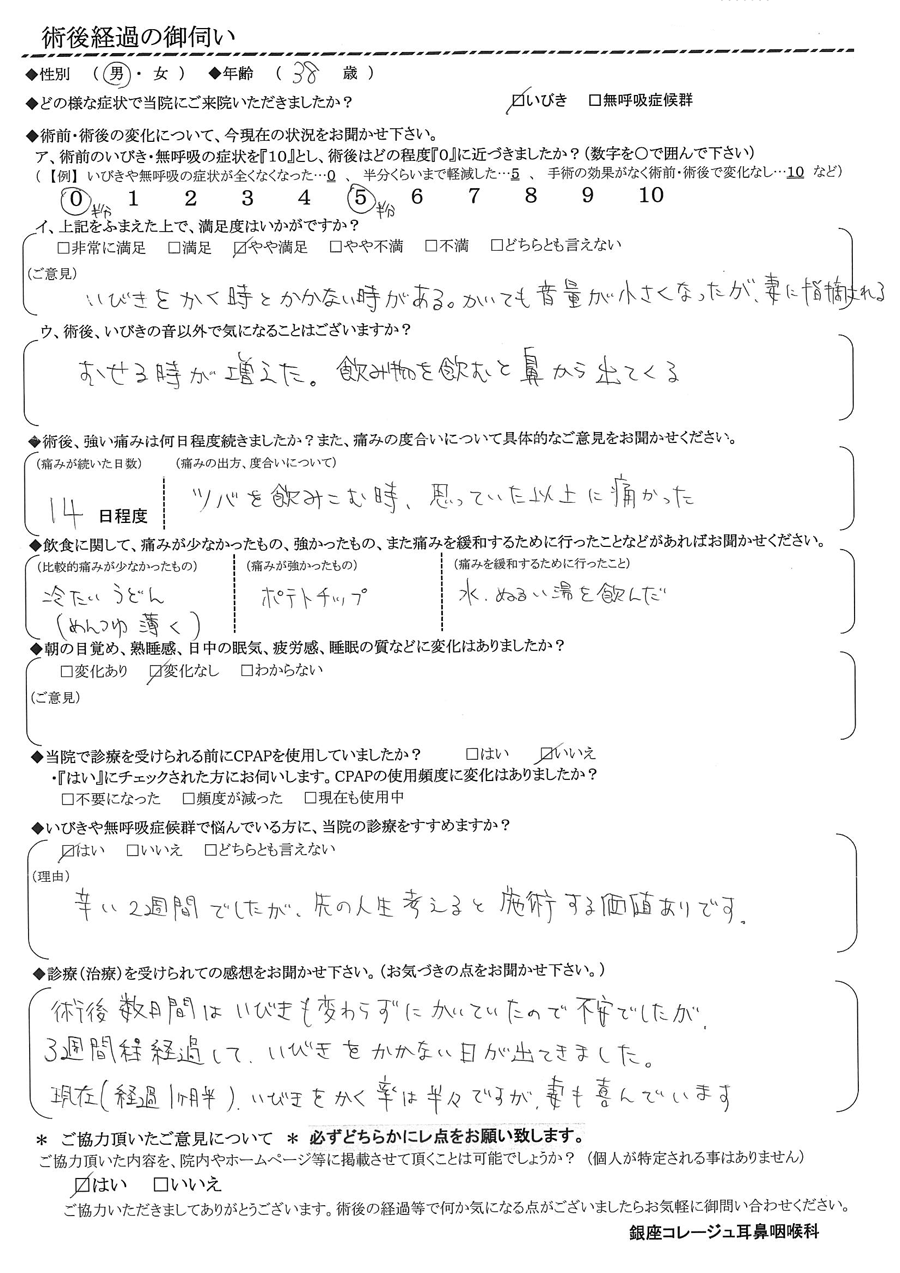 術後経過の御伺い
◆性別 （ 男 ・ 女 ） ◆年齢 （ 38 歳 ）
◆どの様な症状で当院にご来院いただきましたか？ ☑いびき □無呼吸症候群
◆術前・術後の変化について、今現在の状況をお聞かせ下さい。
ア、術前のいびき・無呼吸の症状を『10』とし、術後はどの程度『0』に近づきましたか？（数字を○で囲んで下さい）
（【例】 いびきや無呼吸の症状が全くなくなった…0 、 半分くらいまで軽減した…5 、 手術の効果がなく術前・術後で変化なし…10 など）
0 半分 1 2 3 4 5 半分 6 7 8 9 10
イ、上記をふまえた上で、満足度はいかがですか？
□非常に満足 □満足 ☑やや満足 □やや不満 □不満 □どちらとも言えない
（ご意見）
いびきをかく時とかかない時がある。かいても音量が小さくなったが、妻に指摘される
ウ、術後、いびきの音以外で気になることはございますか？
むせる時が増えた。飲み物を飲むと鼻から出てくる
◆術後、強い痛みは何日程度続きましたか？また、痛みの度合いについて具体的なご意見をお聞かせください。
（痛みが続いた日数） （痛みの出方、度合いについて）
14 日程度 ツバを飲みこむ時、思っていた以上に痛かった
◆飲食に関して、痛みが少なかったもの、強かったもの、また痛みを緩和するために行ったことなどがあればお聞かせください。
（比較的痛みが少なかったもの） （痛みが強かったもの） （痛みを緩和するために行ったこと）
冷たいうどん ポテトチップ 水、ぬるい湯を飲んだ
（めんつゆ 薄く）
◆朝の目覚め、熟睡感、日中の眠気、疲労感、睡眠の質などに変化はありましたか？
□変化あり ☑変化なし □わからない
（ご意見）
◆当院で診療を受けられる前にCPAPを使用していましたか？ □はい ☑いいえ
・『はい』にチェックされた方にお伺いします。CPAPの使用頻度に変化はありましたか？
□不要になった □頻度が減った □現在も使用中
◆いびきや無呼吸症候群で悩んでいる方に、当院の診療をすすめますか？
☑はい □いいえ □どちらとも言えない
（理由）
辛い2週間でしたが、先の人生考えると施術する価値ありです。
◆診療（治療）を受けられての感想をお聞かせ下さい。（お気づきの点をお聞かせ下さい。）
術後数日間はいびきも変わらずにかいていたので不安でしたが、
3週間程経過して、いびきをかかない日が出てきました。
現在（経過1ヶ月半）、いびきをかく率は半々ですが、妻も喜んでいます
＊ ご協力頂いたご意見について ＊ 必ずどちらかにレ点をお願い致します。
ご協力頂いた内容を、院内やホームページ等に掲載させて頂くことは可能でしょうか？（個人が特定される事はありません）
☑はい □いいえ
ご協力いただきましてありがとうございます。術後の経過等で何か気になる点がございましたらお気軽に御問い合わせください。
銀座コレージュ耳鼻咽喉科